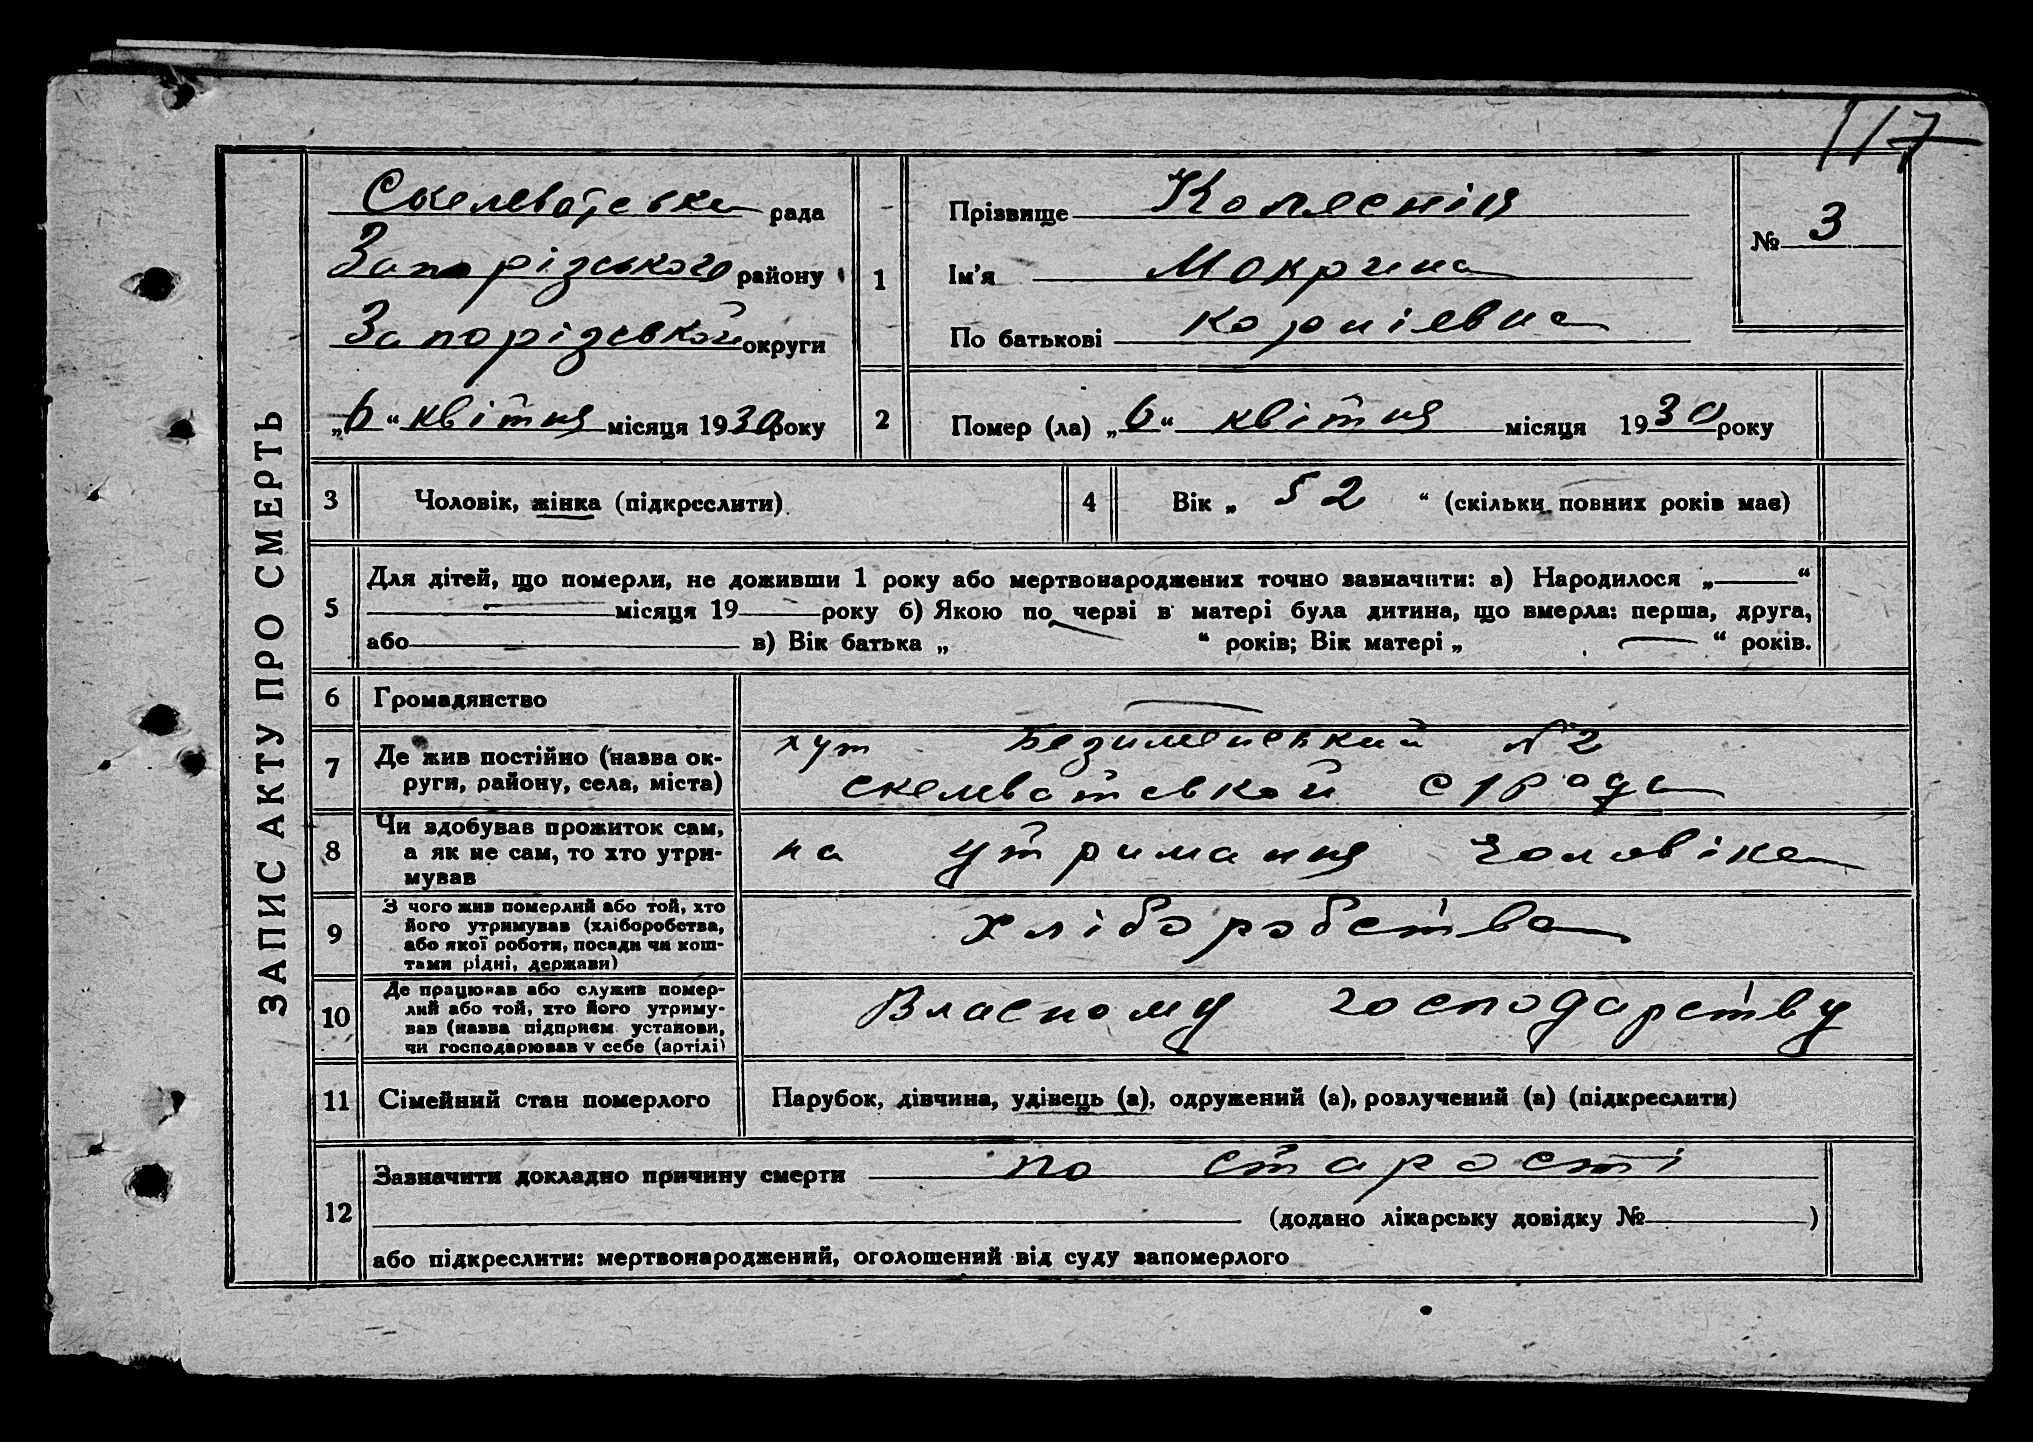 117
ЗАПИС АКТУ ПРО СМЕРТЬ
Скелеватська рада
Запорізського району
Запорізської округи
„6“ квітня місяця 1930 року
1
Прізвище Колесн
Ім'я Мокрина
По батькові Корніевна
№ 3
2
Помер (ла) „6“ квітня місяця 1930 року
3
Чоловік, жінка (підкреслити)
4
Вік „ 52 “ (скільки повних років має)
5
Для дітей, що померли, не доживши 1 року або мертвонароджених точно зазначити: а) Народилося „ “
місяця 19 року б) Якою по черзі в матері була дитина, що вмерла: перша, друга,
або в) Вік батька „ “ років; Вік матері „ “ років.
6
Громадянство
7
Де жив постійно (назва ок-
руги, району, села, міста)
хут Безименський №2
скелеватської с/ради
8
Чи здобував прожиток сам,
а як не сам, то хто утри-
мував
на утримання чоловіка
9
З чого жив померлий або той, хто
його утримував (хліборобства,
або якої роботи, посади чи кош-
тами рідні, держави)
хліборобства
10
Де працював або служив помер-
лий або той, хто його утриму-
вав (назва підприєм. установи,
чи господарював у себе (артілі)
Власному господарству
11
Сімейний стан померлого
Парубок, дівчина, удівець (а), одружений (а), розлучений (а) (підкреслити)
12
Зазначити докладно причину смерти по старості
(додано лікарську довідку № )
або підкреслити: мертвонароджений, оголошений від суду запомерлого